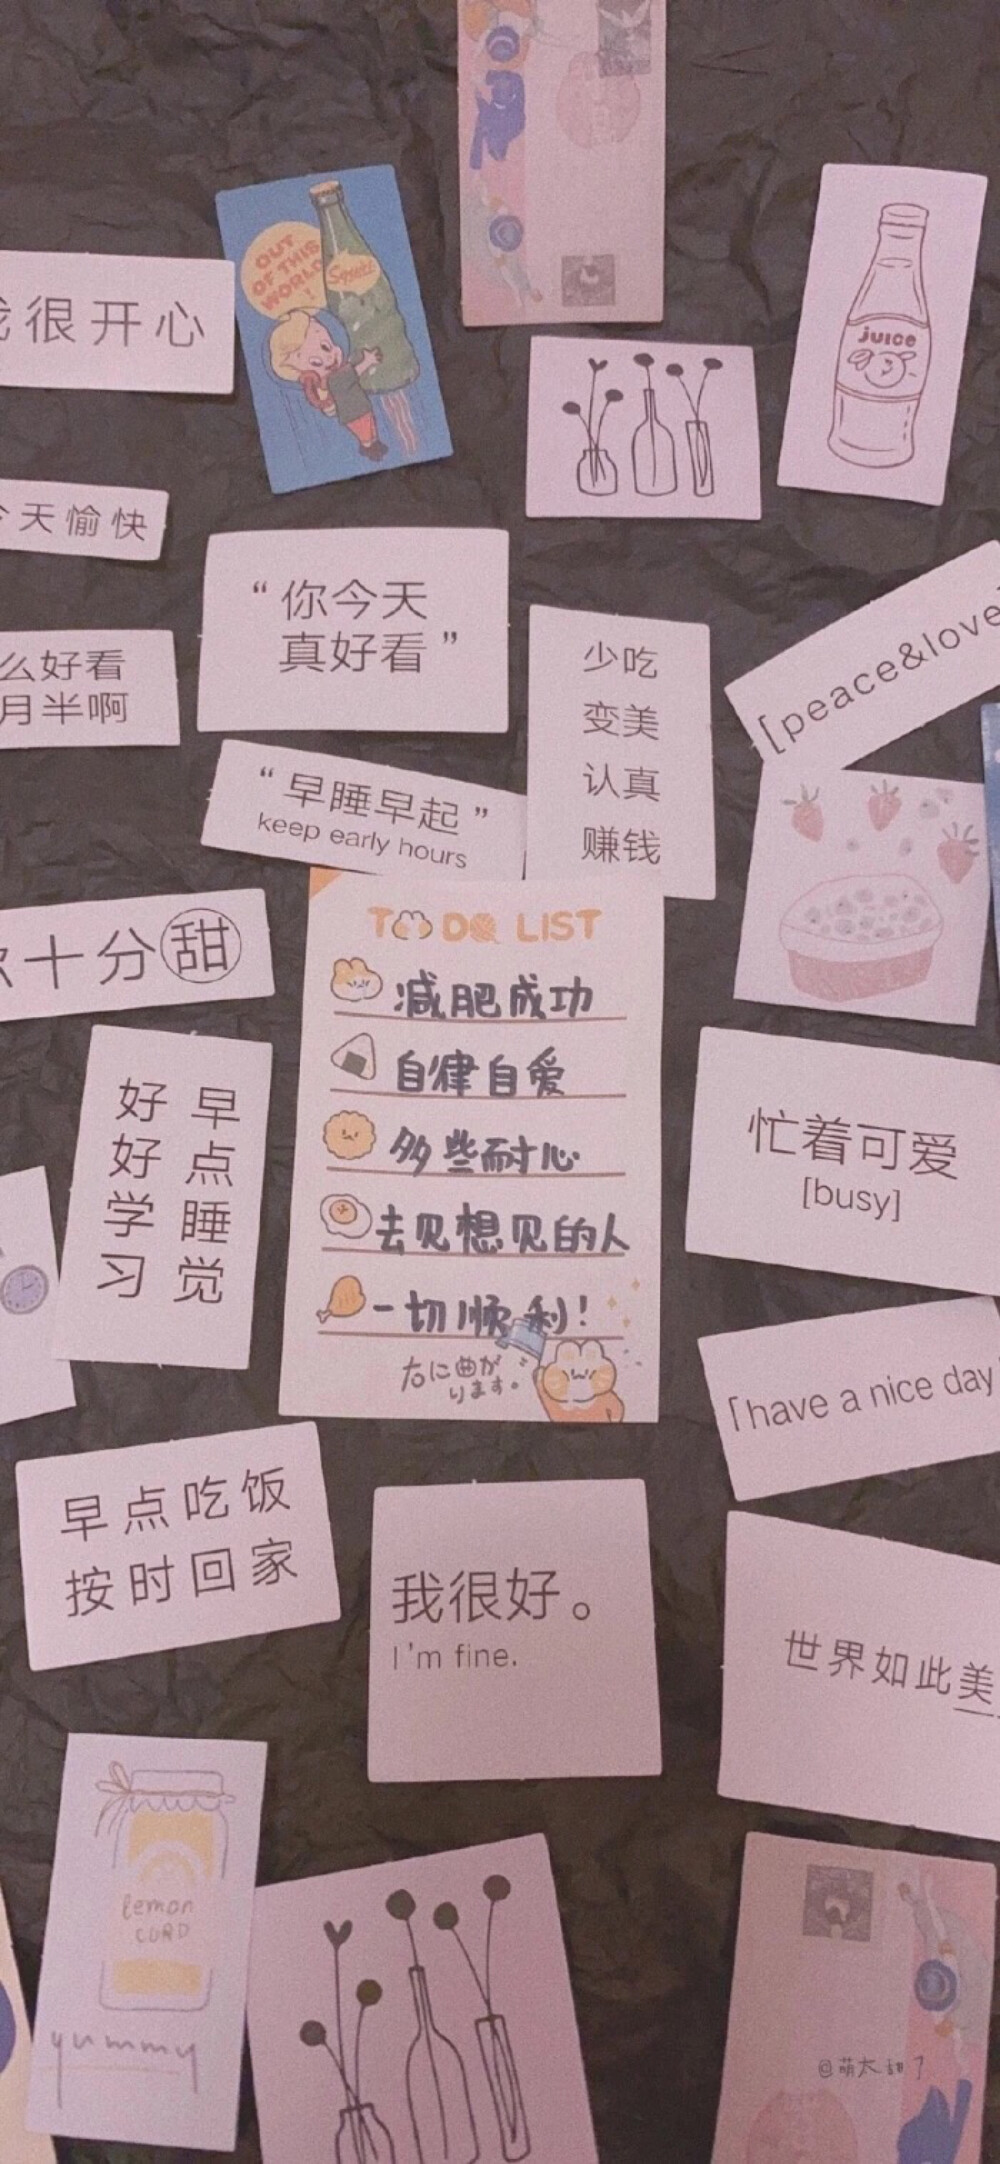 OUT
OF THIS
WORLD
!
Squirt
很开心
juice
天愉快
“你今天
真好看”
么好看
月半啊
少吃
变美
认真
赚钱
[peace&love
“早睡早起”
keep early hours
十分甜
TO DO LIST
减肥成功
自律自爱
多些耐心
去见想见的人
一切顺利!
右に曲が
ります。
早点睡觉
好好学习
忙着可爱
[busy]
「have a nice day
早点吃饭
按时回家
我很好。
I'm fine.
世界如此美
lemon
CURD
yummy
@萌太甜了